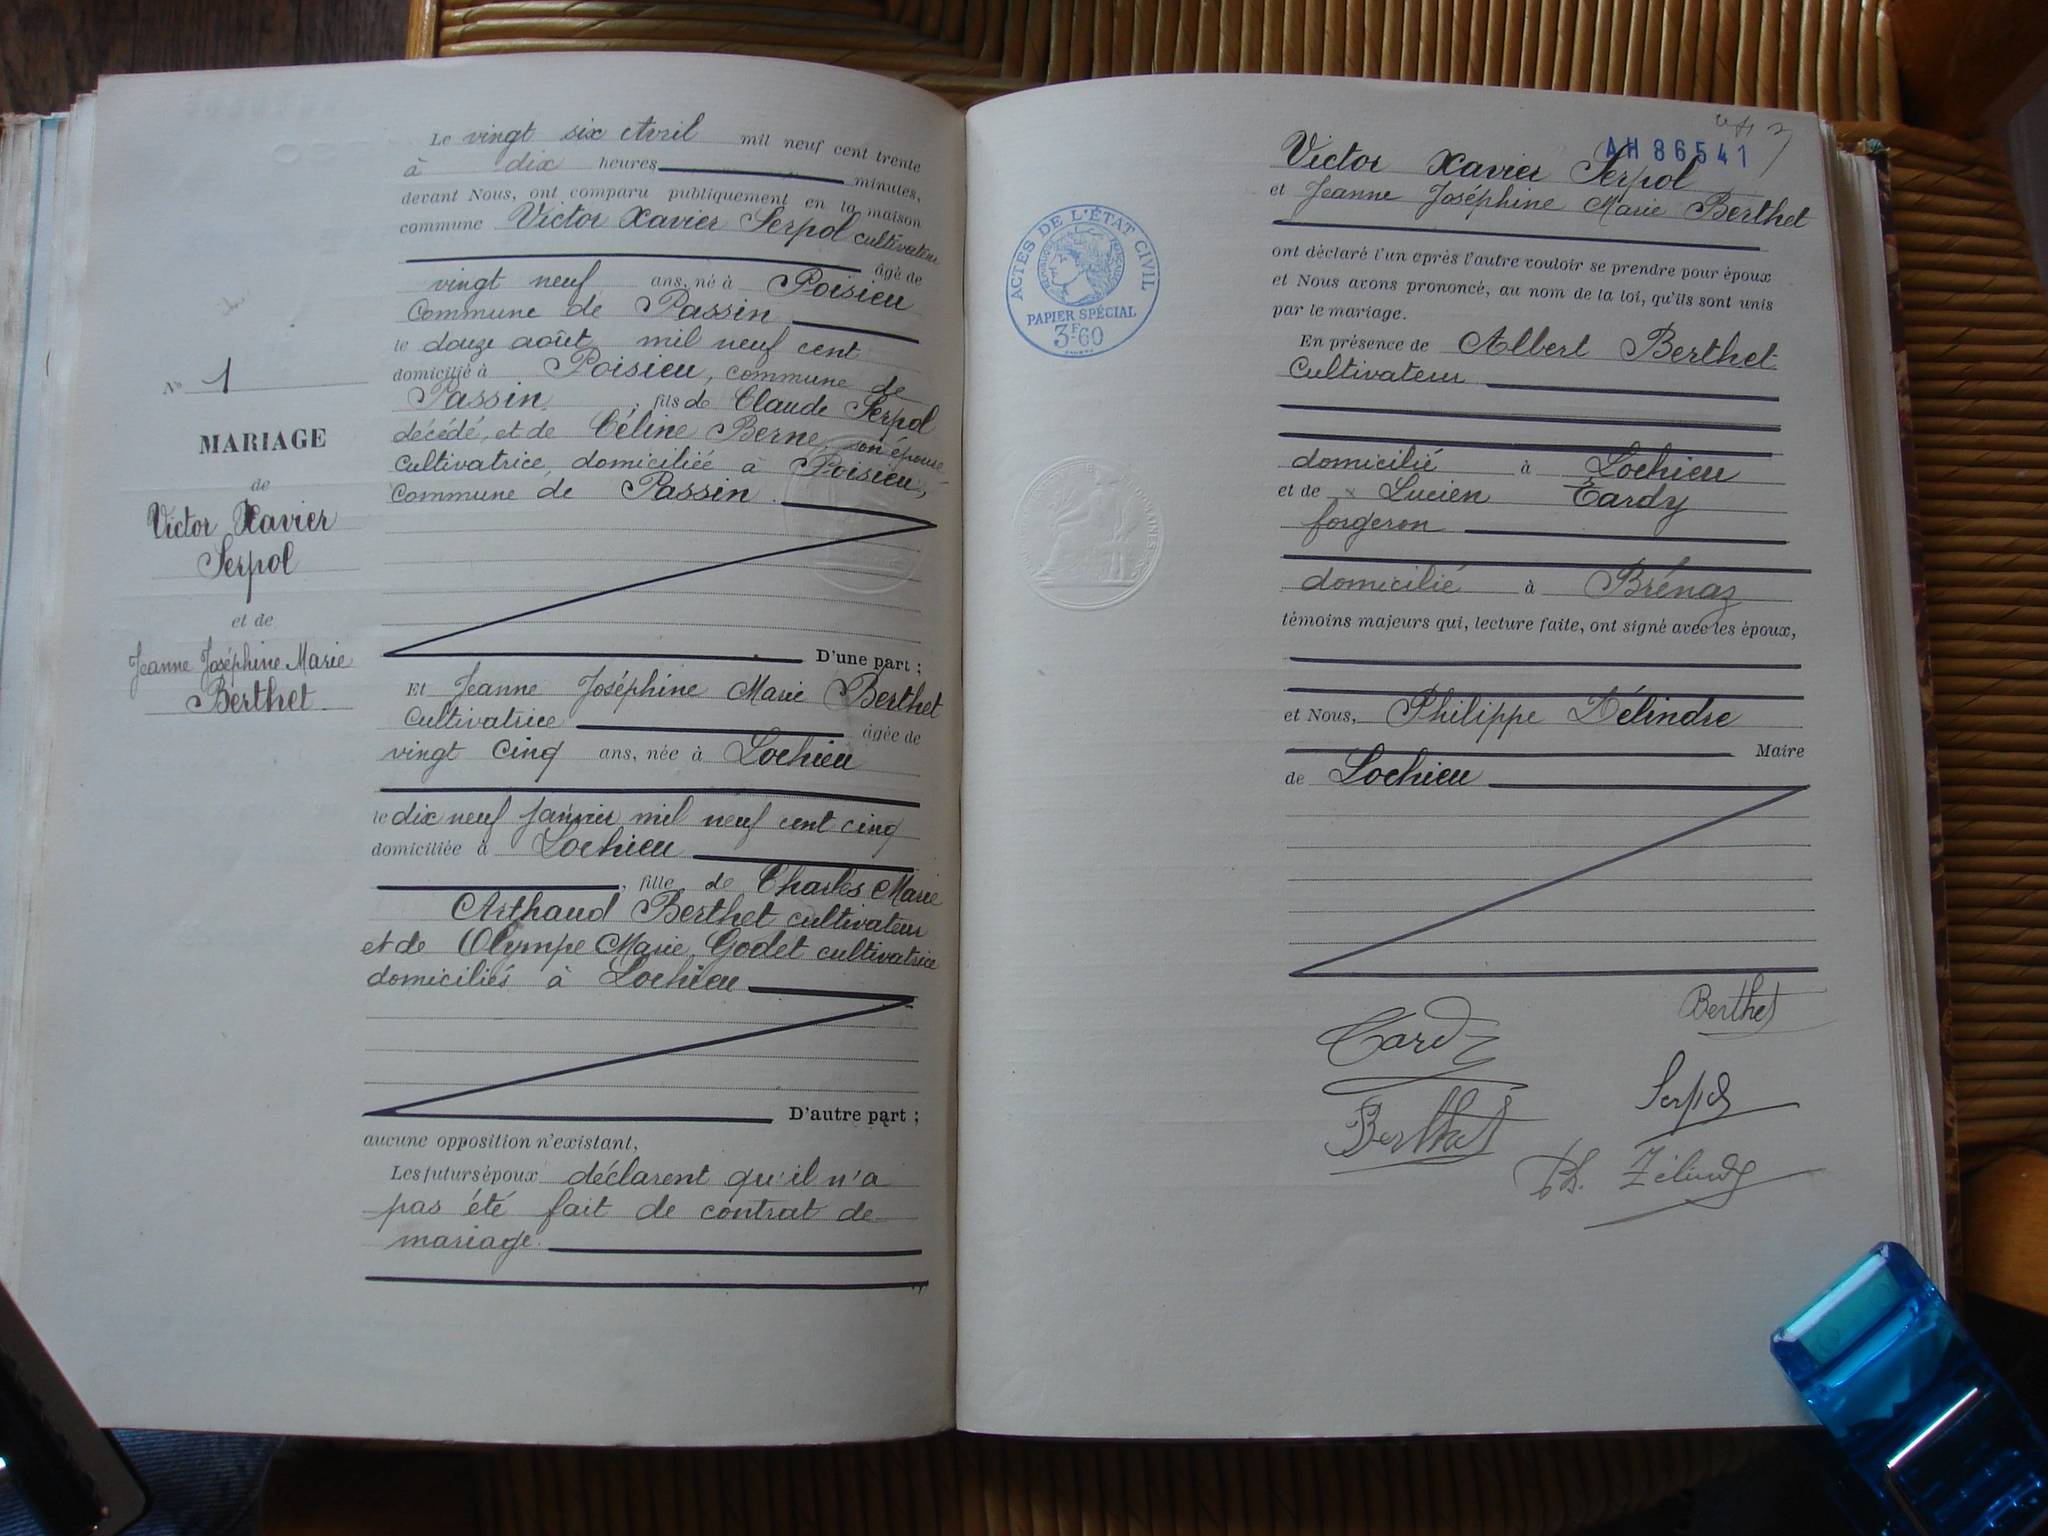 Le vingt six Avril mil neuf cent trente
à dix heures minutes,
devant Nous, ont comparu publiquement en la maison
commune Victor Xavier Serpol cultivateur
âgé de
vingt neuf ans, né à Poisieu
Commune de Passin
le douze août mil neuf cent
domicilié à Poisieu, commune de
Passin, fils de Claude Serpol
décédé, et de Céline Berne, son épouse
cultivatrice, domiciliée à Poisieu,
Commune de Passin.
D'une part ;
Et Jeanne Joséphine Marie Berthet
Cultivatrice âgée de
vingt cinq ans, née à Lochieu
le dix neuf janvier mil neuf cent cinq
domiciliée à Lochieu
, fille de Charles Marie
Arthaud Berthet cultivateur
et de Olympe Marie Godet cultivatrice
domiciliés à Lochieu
D'autre part ;
aucune opposition n'existant,
Les futurs époux déclarent qu'il n'a
pas été fait de contrat de
mariage.
No 1
MARIAGE
de
Victor Xavier
Serpol
et de
Jeanne Joséphine Marie
Berthet
AH 86541
Victor Xavier Serpol
et Jeanne Joséphine Marie Berthet
ont déclaré l'un après l'autre vouloir se prendre pour époux
et Nous avons prononcé, au nom de la loi, qu'ils sont unis
par le mariage.
En présence de Albert Berthet
Cultivateur
domicilié à Lochieu
et de Lucien Tardy
forgeron
domicilié à Brénaz
témoins majeurs qui, lecture faite, ont signé avec les époux,
et Nous, Philippe Zélindre
Maire
de Lochieu
ACTES DE L'ÉTAT CIVIL
PAPIER SPÉCIAL
3F.60
Berthet
Tardy
Serpol
Berthet
Ph. Zélindre